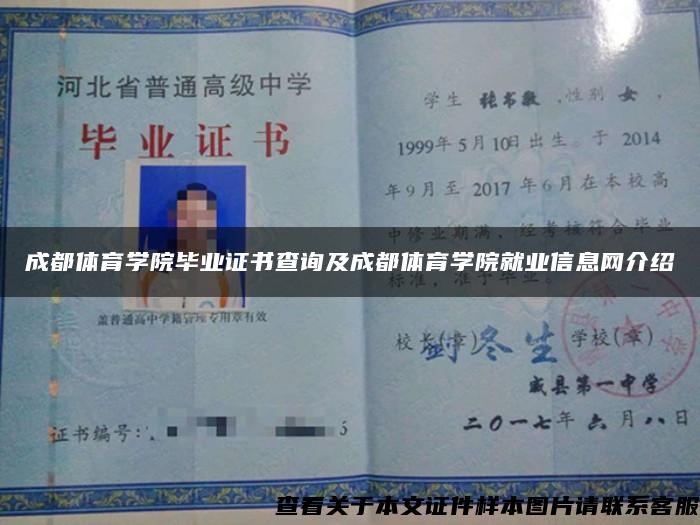 河北省普通高级中学
毕业证书
盖普通高中学籍管理专用章有效
证书编号:
学生 张书敏 ,性别 女 ,
1999年5月10日出生。于 2014
年9月至 2017 年6月在本校高
中修业期满,经考核符合毕业
标准,准予毕业。
成都体育学院毕业证书查询及成都体育学院就业信息网介绍
校长(章)
学校(章)
威县第一中学
二〇一七年 六月八日
查看关于本文证件样本图片请联系客服